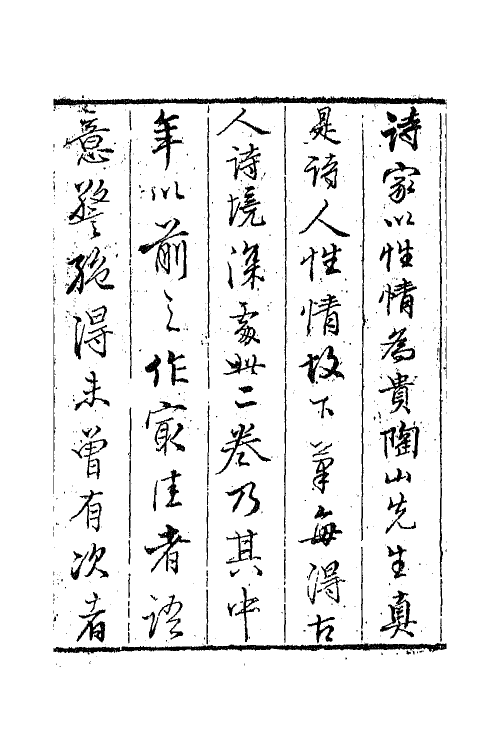 诗家以性情為貴陶山先生真
是诗人性情故下筆每得古
人诗境深處此二卷乃其中
年以前之作寂佳者语
意警絶得未曾有次者